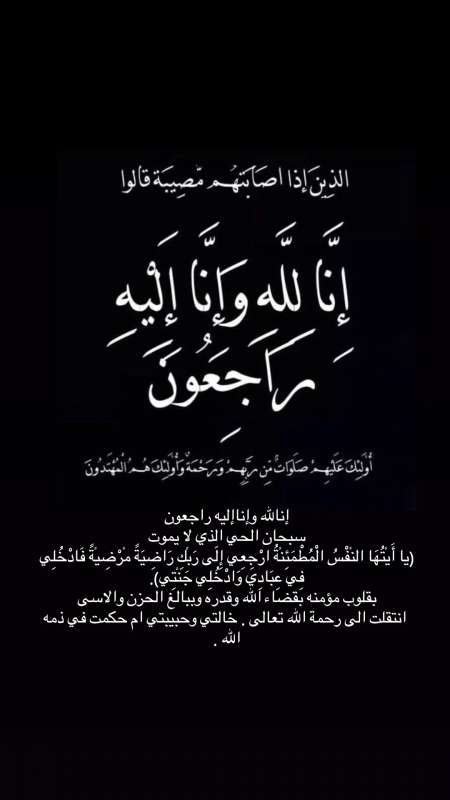 الَّذِينَ إِذَا اصَابَتْهُم مُّصِيبَة قَالُوا
إِنَّا لِلَّهِ وَإِنَّا إِلَيْهِ
رَاجِعُونَ
أُولَئِكَ عَلَيْهِمْ صَلَوَاتٌ مِّن رَّبِّهِمْ وَرَحْمَةٌ وَأُولَئِكَ هُمُ الْمُهْتَدُونَ
إنالله وإناإليه راجعون
سبحان الحي الذي لا يموت
(يا أَيَتُهَا النفْسُ الْمُطْمَئِنةُ ارْجِعِي إِلَى رَبكِ رَاضِيَةً مرْضِيةً فَادْخُلِي
فِي عِبَادِي وَادْخُلِي جَنتِي).
بقلوب مؤمنه بقضاء الله وقدره وببالغ الحزن والاسى
انتقلت الى رحمة الله تعالى . خالتي وحبيبتي ام حكمت في ذمه
الله .